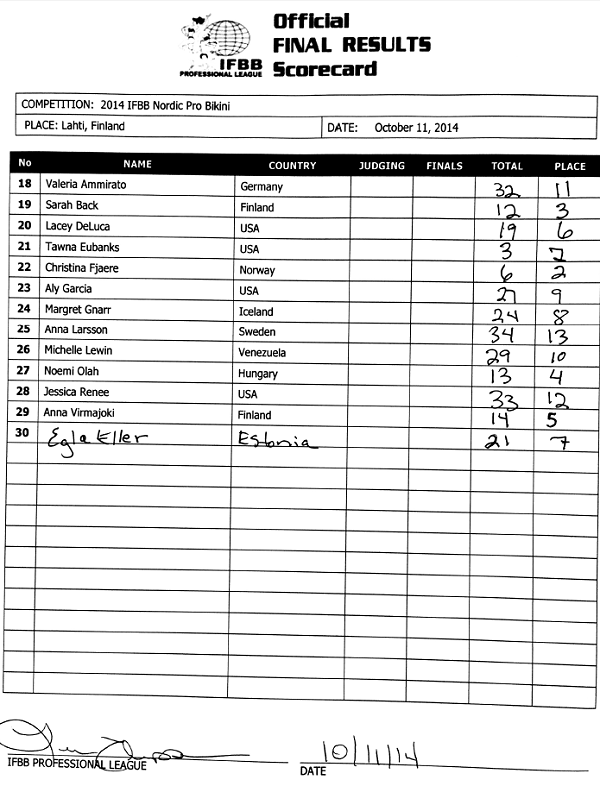 IFBB
PROFESSIONAL LEAGUE
Official
FINAL RESULTS
Scorecard
COMPETITION: 2014 IFBB Nordic Pro Bikini
PLACE: Lahti, Finland DATE: October 11, 2014
No NAME COUNTRY JUDGING FINALS TOTAL PLACE
18 Valeria Ammirato Germany 32 11
19 Sarah Back Finland 12 3
20 Lacey DeLuca USA 19 6
21 Tawna Eubanks USA 3 1
22 Christina Fjaere Norway 6 2
23 Aly Garcia USA 27 9
24 Margret Gnarr Iceland 24 8
25 Anna Larsson Sweden 34 13
26 Michelle Lewin Venezuela 29 10
27 Noemi Olah Hungary 13 4
28 Jessica Renee USA 33 12
29 Anna Virmajoki Finland 14 5
30 Egla Eller Estonia 21 7
10/11/14
IFBB PROFESSIONAL LEAGUE DATE